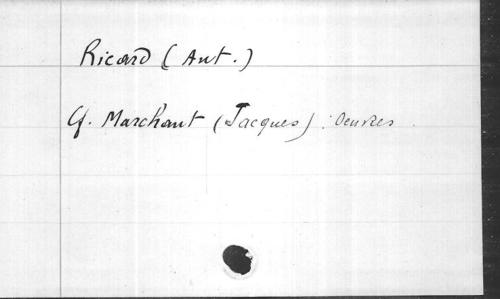 Ricard (Ant.)
Cf. Marchant (Jacques) : Oeuvres